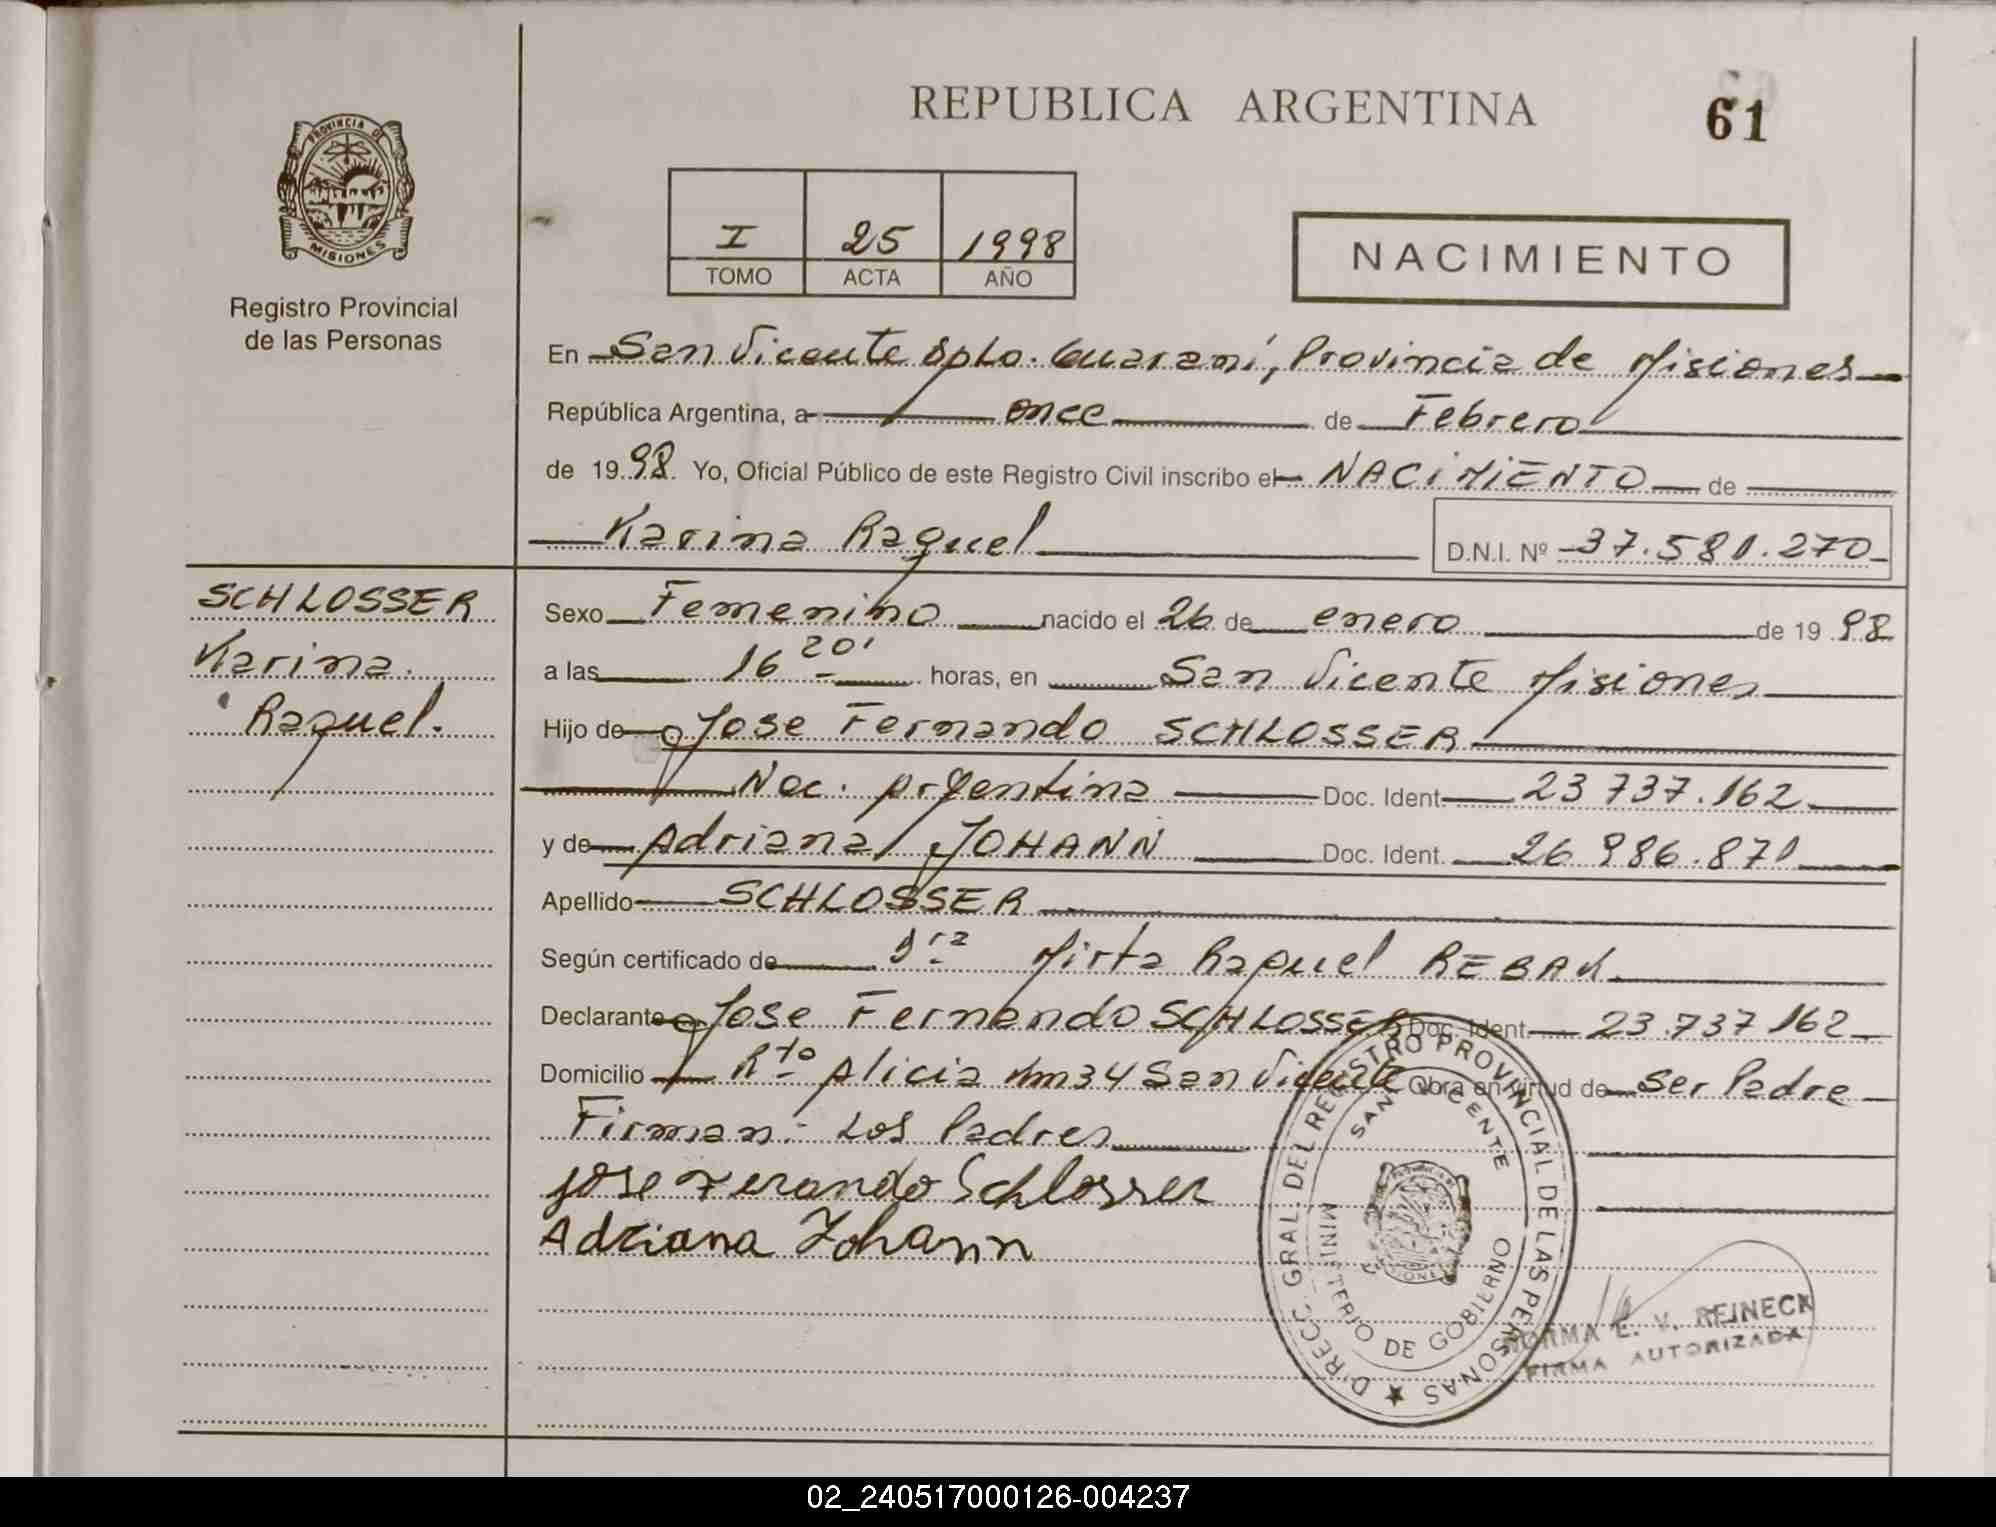 REPUBLICA ARGENTINA
61
PROVINCIA DE
MISIONES
Registro Provincial
de las Personas
I 25 1998
TOMO ACTA AÑO
NACIMIENTO
En San Vicente Dpto. Guaraní, Provincia de Misiones
República Argentina, a once de Febrero
de 19 98. Yo, Oficial Público de este Registro Civil inscribo el NACIMIENTO de
Karina Raquel D.N.I. Nº 37.581.270
SCHLOSSER
Karina
Raquel.
Sexo Femenino nacido el 26 de enero de 19 98
a las 16 20' horas, en San Vicente Misiones
Hijo de Jose Fernando SCHLOSSER
Nac. Argentina Doc. Ident. 23 737.162
y de Adriana JOHANN Doc. Ident. 26 986.871
Apellido SCHLOSSER
Según certificado de Dra Mirta Raquel REBAK
Declarante Jose Fernando SCHLOSSER Doc. Ident. 23.737 162
Domicilio Rto Alicia Km 34 San Vicente Obra en virtud de Ser Padre
Firman: Los Padres
Jose Ferando Schlosser
Adriana Johann
DIRECC. GRAL. DEL REGISTRO PROVINCIAL DE LAS PERSONAS
SAN VICENTE
MISIONES
MINISTERIO DE GOBIERNO
NORMA E. V. REINECK
FIRMA AUTORIZADA
02_240517000126-004237